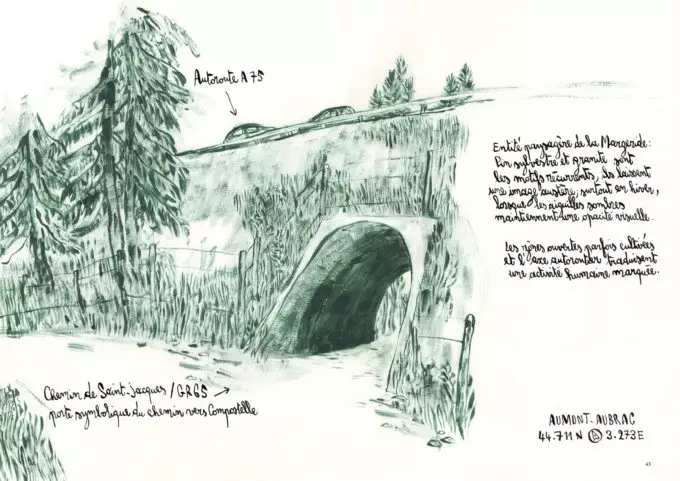 Autoroute A 75
Entité paysagère de la Margeride :
Pin sylvestre et granite sont
les motifs récurrents, ils laissent
une image austère, surtout en hiver,
lorsque les aiguilles sombres
maintiennent une opacité visuelle.
Les rares ouvertes parfois cultivées
et l'axe autoroutier traduisent
une activité humaine marquée.
Chemin de Saint-Jacques / GR65
porte symbolique du chemin vers Compostelle
AUMONT-AUBRAC
44.711 N 3.273 E
43